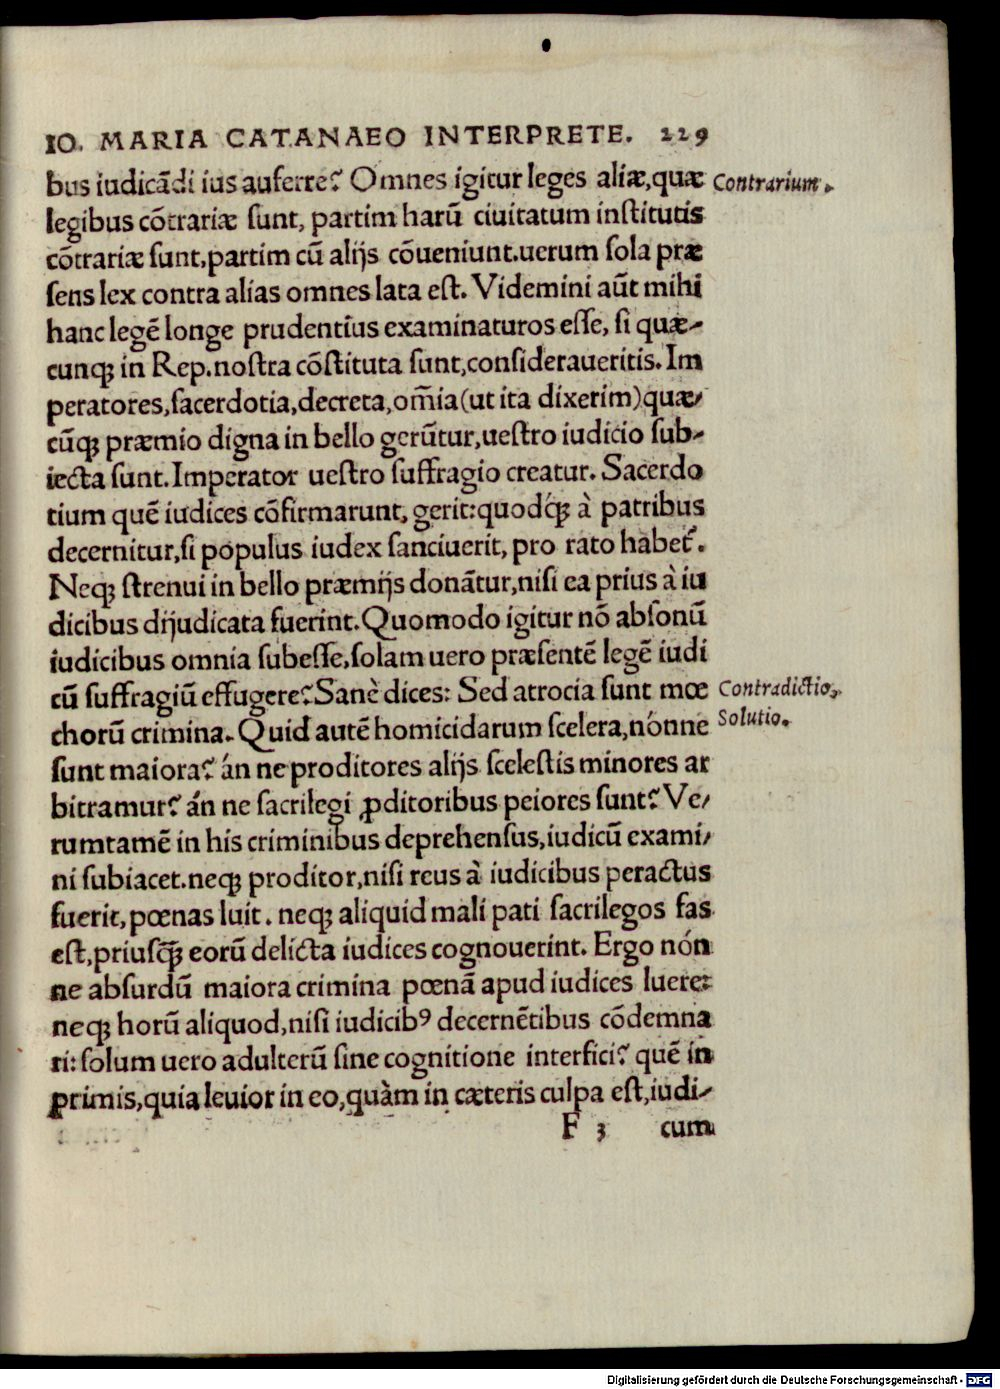 IO. MARIA CATANAEO INTERPRETE. 229
bus iudicãdi ius auferre? Omnes igitur leges aliæ,quæ Contrarium.
legibus cõtrariæ sunt, partim harũ ciuitatum institutis
cõtrariæ sunt,partim cũ alijs cõueniunt.uerum sola præ
sens lex contra alias omnes lata est. Videmini aũt mihi
hanc legẽ longe prudentius examinaturos esse, si quæ-
cunqꝫ in Rep.nostra cõstituta sunt,consideraueritis. Im
peratores,sacerdotia,decreta,om̃ia(ut ita dixerim)quæ/
cũqꝫ præmio digna in bello gerũtur,uestro iudicio sub-
iecta sunt.Imperator uestro suffragio creatur. Sacerdo
tium quẽ iudices cõfirmarunt, gerit:quodqꝫ́ à patribus
decernitur,si populus iudex sanciuerit, pro rato habet̃.
Neqꝫ strenui in bello præmijs donãtur,nisi ea prius à iu
dicibus dijudicata fuerint.Quomodo igitur nõ absonũ
iudicibus omnia subesse,solam uero præsentẽ legẽ iudi
cũ suffragiũ effugere?Sanè dices: Sed atrocia sunt mœ Contradictio.
chorũ crimina. Quid autẽ homicidarum scelera,nónne Solutio.
sunt maiora? án ne proditores alijs scelestis minores ar
bitramur? án ne sacrilegi ꝓditoribus peiores sunt? Ve/
rumtamẽ in his criminibus deprehensus,iudicũ exami/
ni subiacet.neqꝫ proditor,nisi reus à iudicibus peractus
fuerit,pœnas luit. neqꝫ aliquid mali pati sacrilegos fas
est,priusq̃ꝫ eorũ delicta iudices cognouerint. Ergo nón
ne absurdũ maiora crimina pœnã apud iudices luere:
neqꝫ horũ aliquod,nisi iudicibꝰ decernẽtibus cõdemna
ri: solum uero adulterũ sine cognitione interfici? quẽ in
primis,quia leuior in eo,quàm in cæteris culpa est,iudi-
F 3 cum
Digitalisierung gefördert durch die Deutsche Forschungsgemeinschaft - DFG